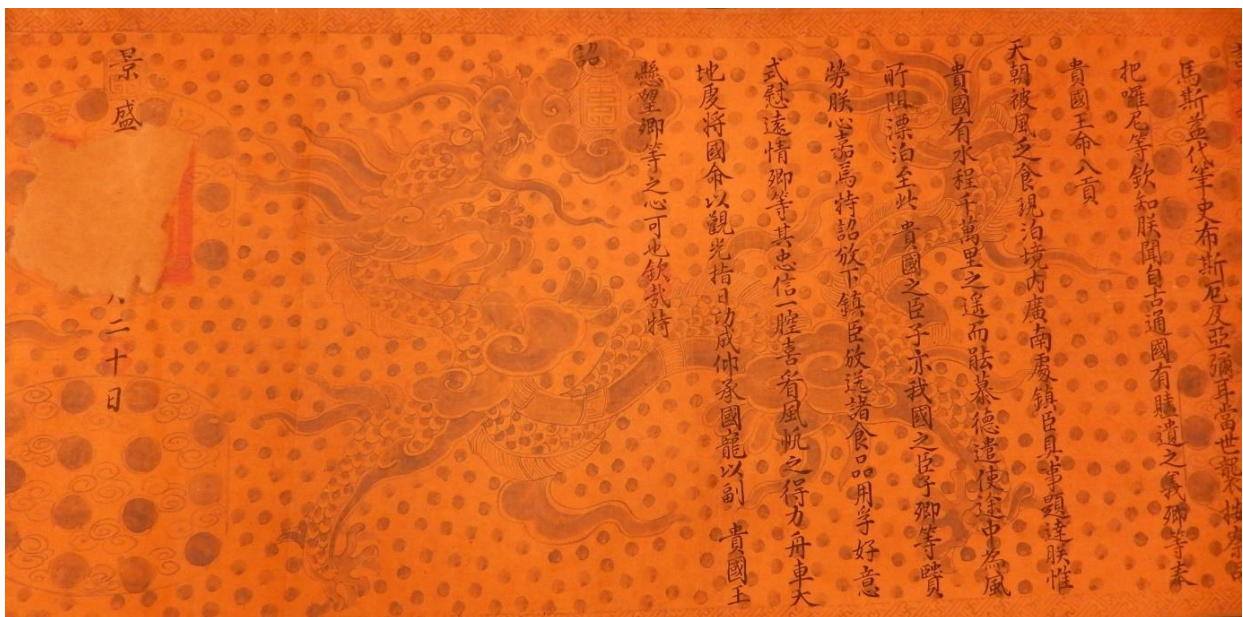 馬斯益代筆史布斯厄及亞彌耳當世襲技察
把囉尼等欽知朕聞自古通國有贐遺之義卿等奉
貴國王命入貢
天朝被風乏食現泊境內廣南處鎮臣具事題達朕惟
貴國有水程千萬里之遥而能慕德遣使途中為風
所阻漂泊至此 貴國之臣子亦我國之臣子卿等賢
勞朕心嘉焉特詔放下鎮臣放送諸食品用孚好意
式慰遠情卿等其忠信一腔喜看風帆之得力舟車大
地處將國命以觀光指日功成仰承國寵以副 貴國王
懸望卿等之心可也欽哉特
詔
景盛
月二十日